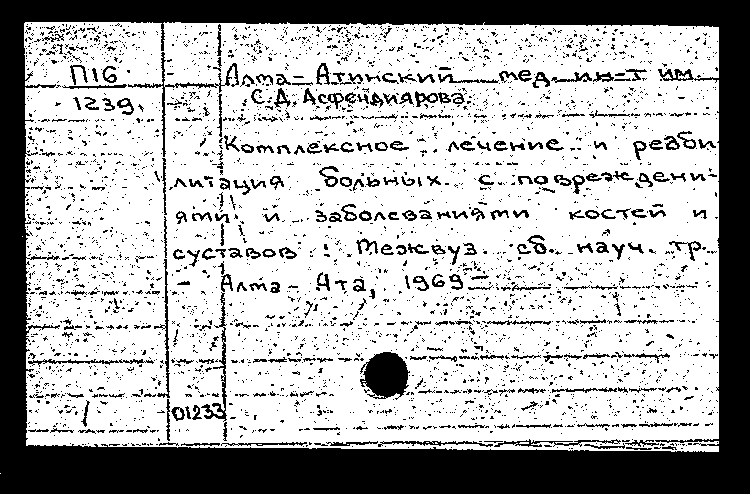 П16
Алма-Атинский мед. ин-т им.
1239.
С.Д. Асфендиярова.
Комплексное лечение и реаби-
литация больных с повреждени-
ями и заболеваниями костей и
суставов: Межвуз. сб. науч. тр.
- Алма-Ата, 1969-
01233